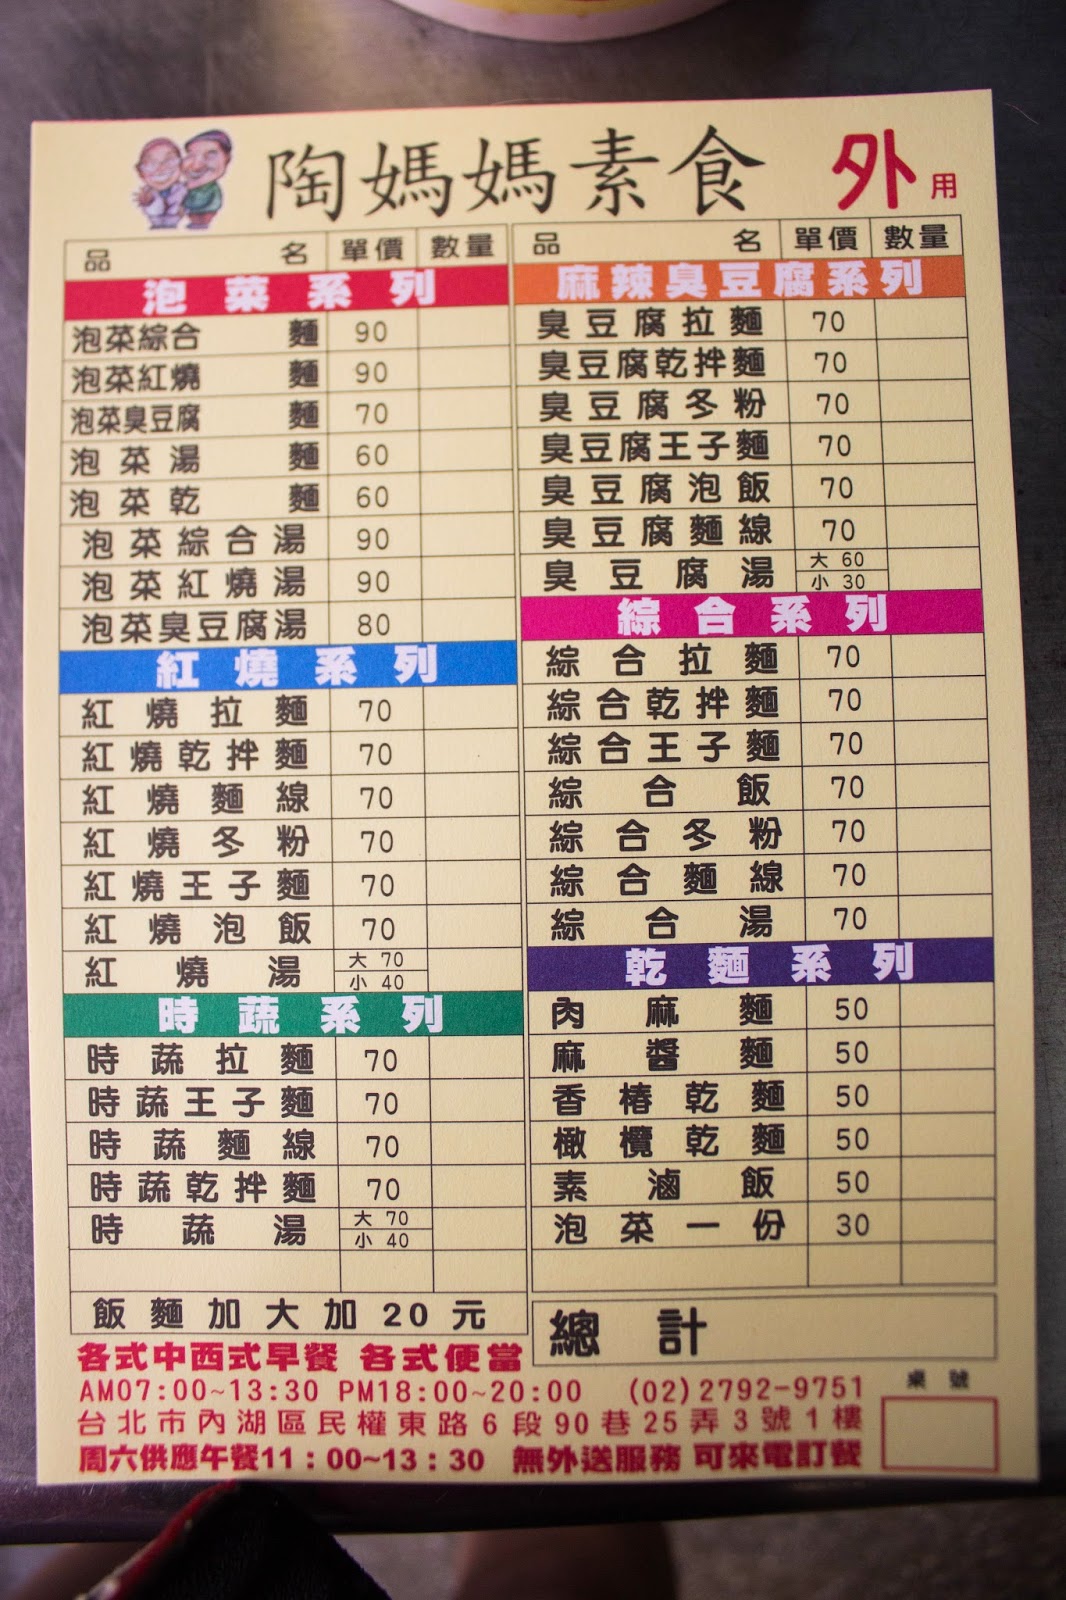 陶媽媽素食 外用
品名 單價 數量
泡菜系列
泡菜綜合麵 90
泡菜紅燒麵 90
泡菜臭豆腐麵 70
泡菜湯麵 60
泡菜乾麵 60
泡菜綜合湯 90
泡菜紅燒湯 90
泡菜臭豆腐湯 80
紅燒系列
紅燒拉麵 70
紅燒乾拌麵 70
紅燒麵線 70
紅燒冬粉 70
紅燒王子麵 70
紅燒泡飯 70
紅燒湯 大 70 小 40
時蔬系列
時蔬拉麵 70
時蔬王子麵 70
時蔬麵線 70
時蔬乾拌麵 70
時蔬湯 大 70 小 40
飯麵加大加20元
品名 單價 數量
麻辣臭豆腐系列
臭豆腐拉麵 70
臭豆腐乾拌麵 70
臭豆腐冬粉 70
臭豆腐王子麵 70
臭豆腐泡飯 70
臭豆腐麵線 70
臭豆腐湯 大 60 小 30
綜合系列
綜合拉麵 70
綜合乾拌麵 70
綜合王子麵 70
綜合飯 70
綜合冬粉 70
綜合麵線 70
綜合湯 70
乾麵系列
肉麻麵 50
麻醬麵 50
香椿乾麵 50
橄欖乾麵 50
素滷飯 50
泡菜一份 30
總計
各式中西式早餐 各式便當
AM07:00~13:30 PM18:00~20:00 (02)2792-9751
台北市內湖區民權東路6段90巷25弄3號1樓
周六供應午餐11：00~13：30 無外送服務 可來電訂餐
桌號